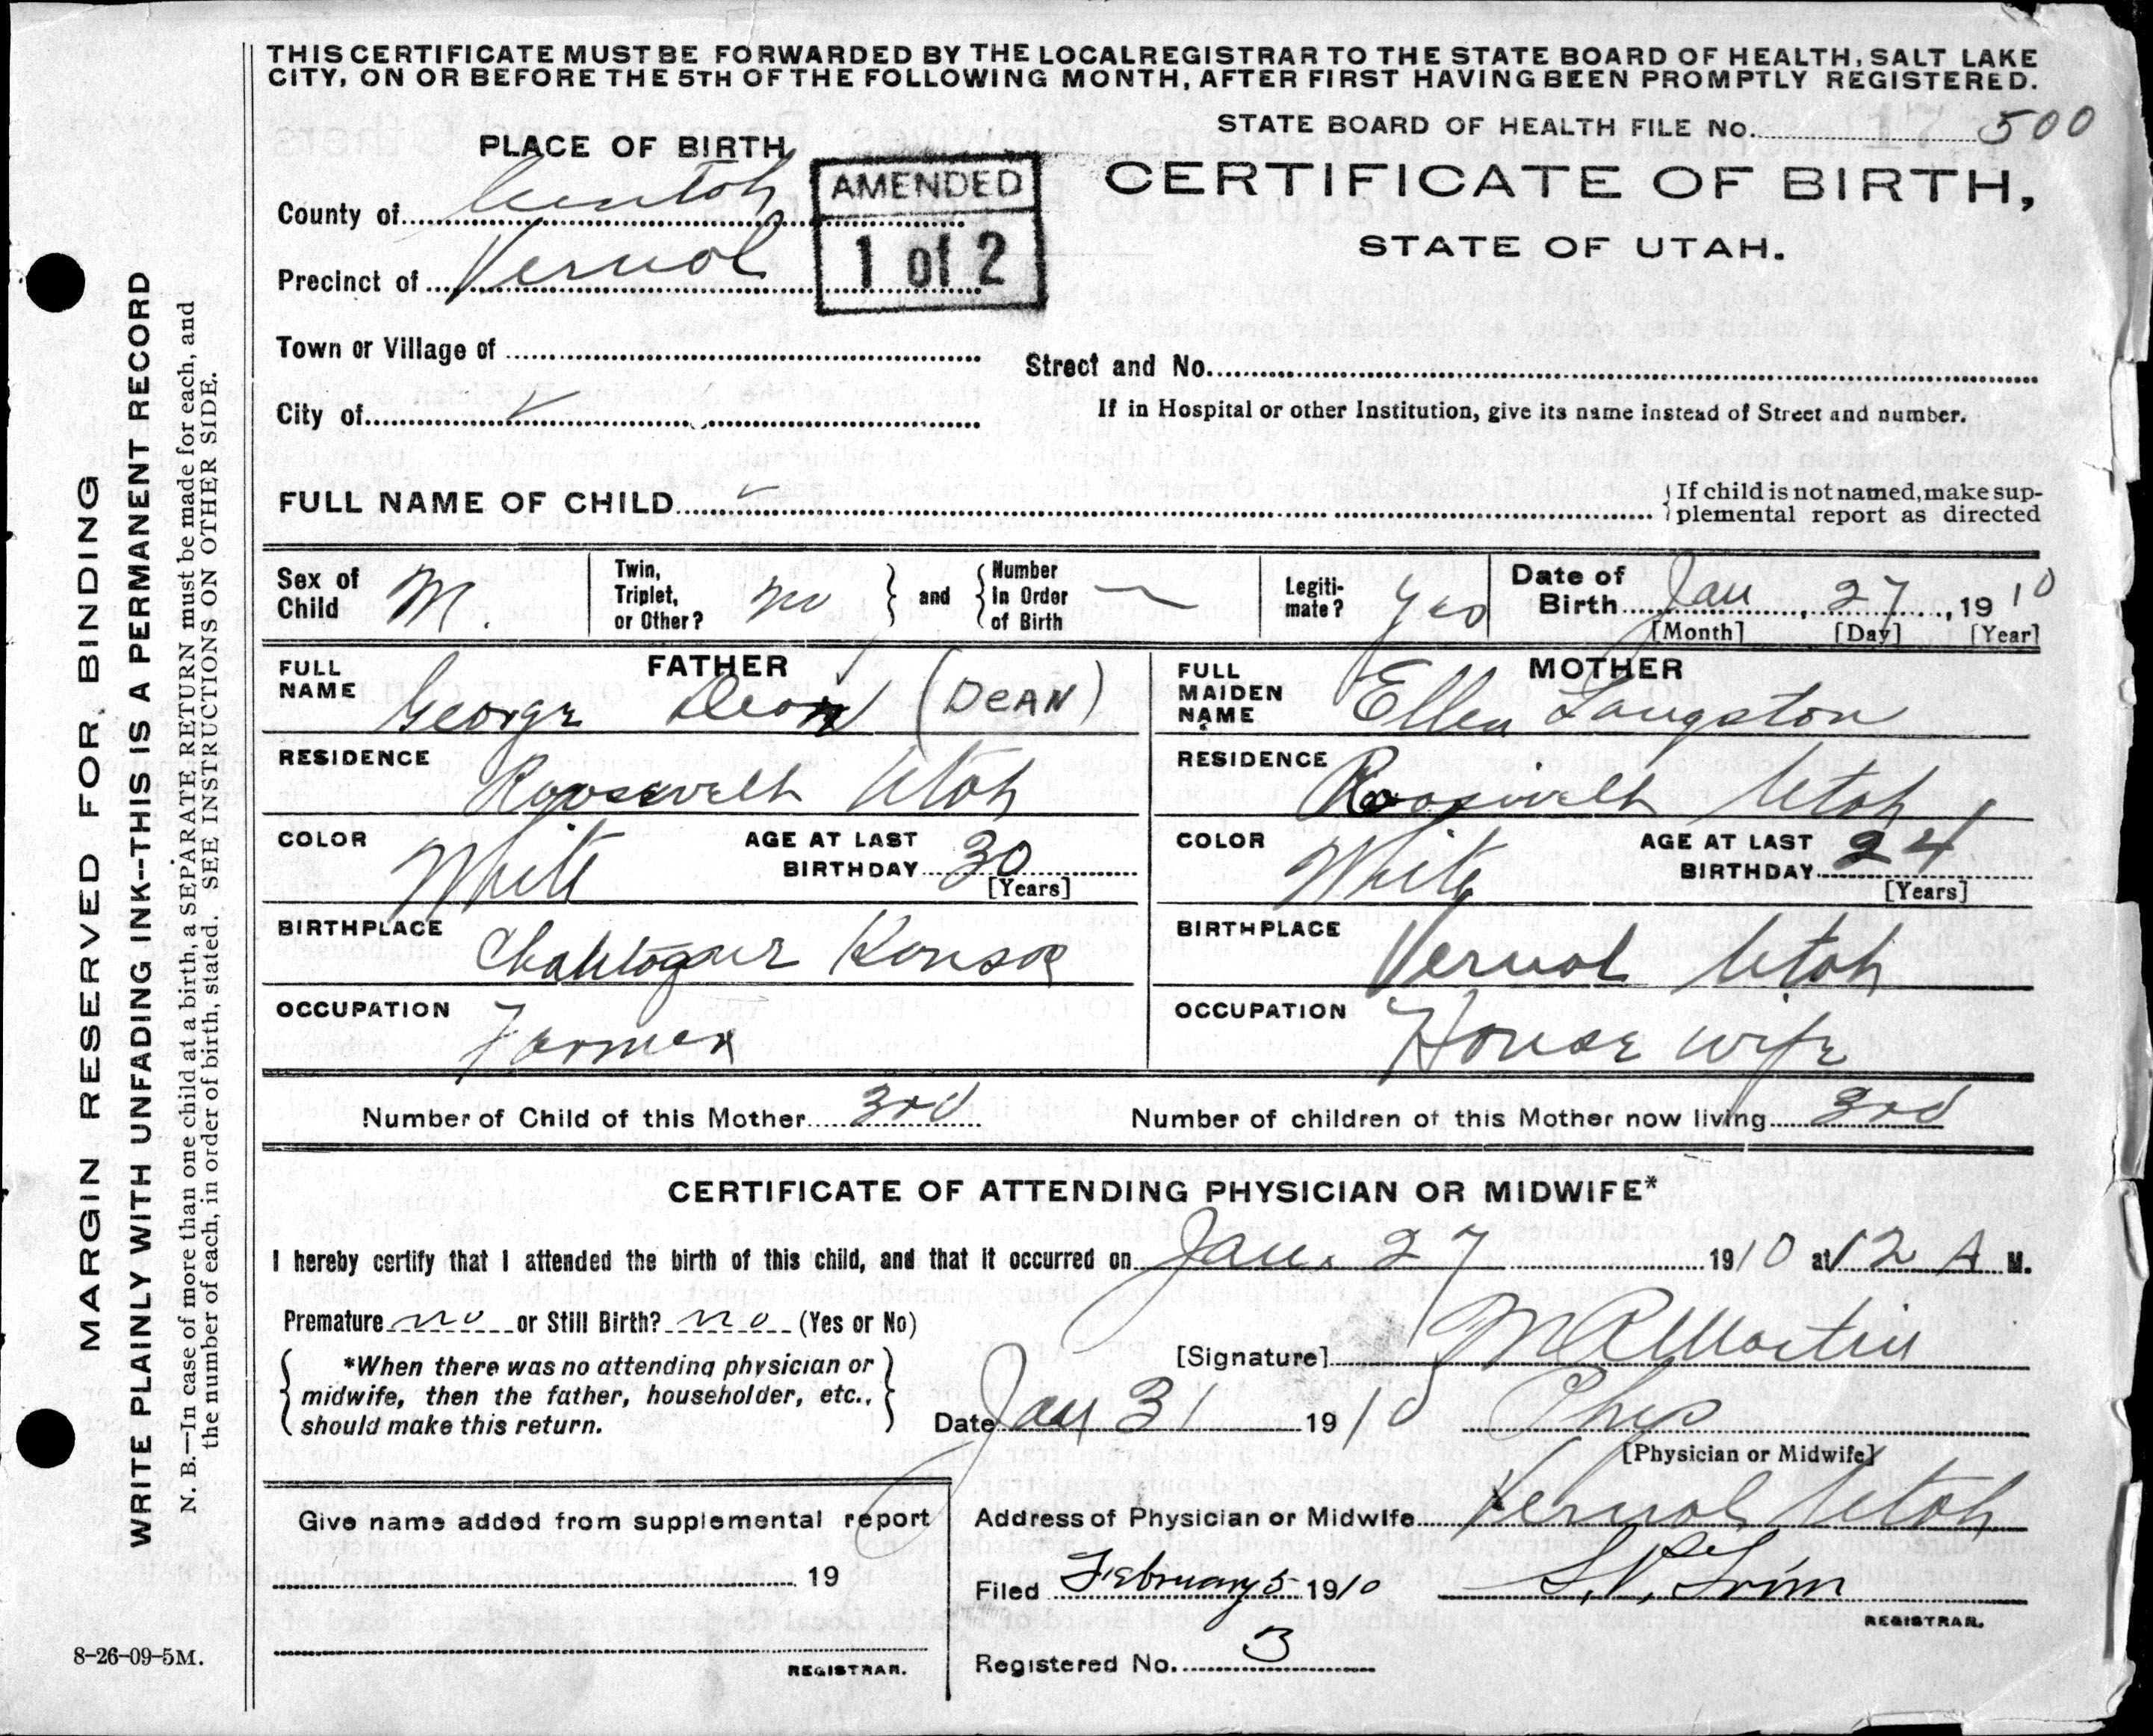 THIS CERTIFICATE MUST BE FORWARDED BY THE LOCAL REGISTRAR TO THE STATE BOARD OF HEALTH, SALT LAKE
CITY, ON OR BEFORE THE 5TH OF THE FOLLOWING MONTH, AFTER FIRST HAVING BEEN PROMPTLY REGISTERED.
STATE BOARD OF HEALTH FILE No. 500
PLACE OF BIRTH
CERTIFICATE OF BIRTH,
STATE OF UTAH.
AMENDED
1 of 2
County of Uintah
Precinct of Vernal
Town or Village of
Street and No.
City of
If in Hospital or other Institution, give its name instead of Street and number.
FULL NAME OF CHILD
If child is not named, make sup-
plemental report as directed
Sex of Child M.
Twin, Triplet, or Other? no
and
Number in Order of Birth —
Legiti-mate? Yes
Date of Birth Jan, 27, 1910
[Month] [Day] [Year]
FATHER
FULL NAME George Dean (DEAN)
RESIDENCE Roosevelt Utah
COLOR White
AGE AT LAST BIRTHDAY 30
[Years]
BIRTHPLACE Kansas
OCCUPATION Farmer
MOTHER
FULL MAIDEN NAME Ellen Langston
RESIDENCE Roosevelt Utah
COLOR White
AGE AT LAST BIRTHDAY 24
[Years]
BIRTHPLACE Vernal Utah
OCCUPATION House wife
Number of Child of this Mother 3rd
Number of children of this Mother now living 3rd
CERTIFICATE OF ATTENDING PHYSICIAN OR MIDWIFE*
I hereby certify that I attended the birth of this child, and that it occurred on Jan. 27 1910 at 12 A M.
Premature no or Still Birth? no (Yes or No)
*When there was no attending physician or
midwife, then the father, householder, etc.,
should make this return.
[Signature] Martin
Date Jan 31 1910 Phys
[Physician or Midwife]
Give name added from supplemental report
19
REGISTRAR.
Address of Physician or Midwife Vernal Utah
Filed February 5 1910
REGISTRAR.
Registered No. 3
8-26-09-5M.
MARGIN RESERVED FOR BINDING
WRITE PLAINLY WITH UNFADING INK--THIS IS A PERMANENT RECORD
N. B.—In case of more than one child at a birth, a SEPARATE RETURN must be made for each, and
the number of each, in order of birth, stated. SEE INSTRUCTIONS ON OTHER SIDE.